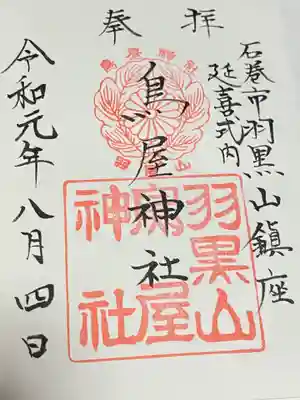 奉拝
石巻市羽黒山鎮座
延喜式内
鳥屋神社
羽黒山
鳥屋
神社
令和元年八月四日